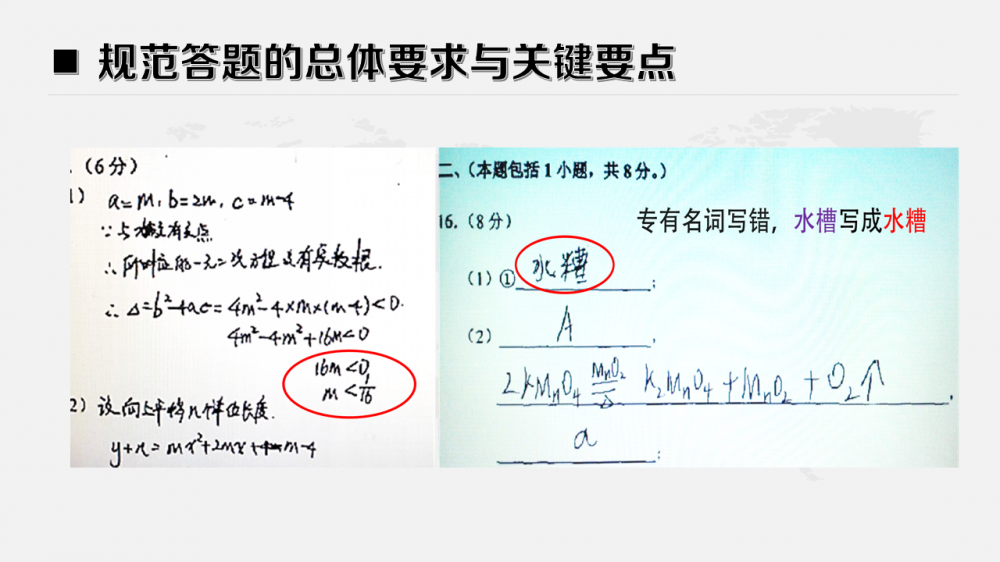 ■ 规范答题的总体要求与关键要点
.（6分）
1） a=m，b=2m，c=m-4
∵与x轴没有交点
∴所对应的一元二次方程没有实数根.
∴△=b²-4ac=4m²-4×m×(m-4)<0.
4m²-4m²+16m<0
16m<0,
m<1/16
2） 设向上平移n个单位长度.
y+n=mx²+2mx+m-4
二、（本题包括1小题，共8分。）
16.（8分）
专有名词写错，水槽写成水糟
（1）① 水糟 ；
（2） A .
2KMnO4 MnO2 △ K2MnO4+MnO2+O2↑ .
a ；